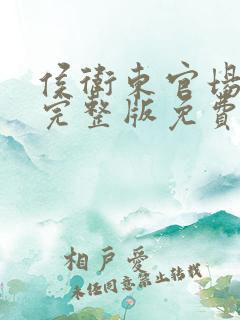 侯衛東官場
完整版免費
相戶愛
未经同意禁止转载